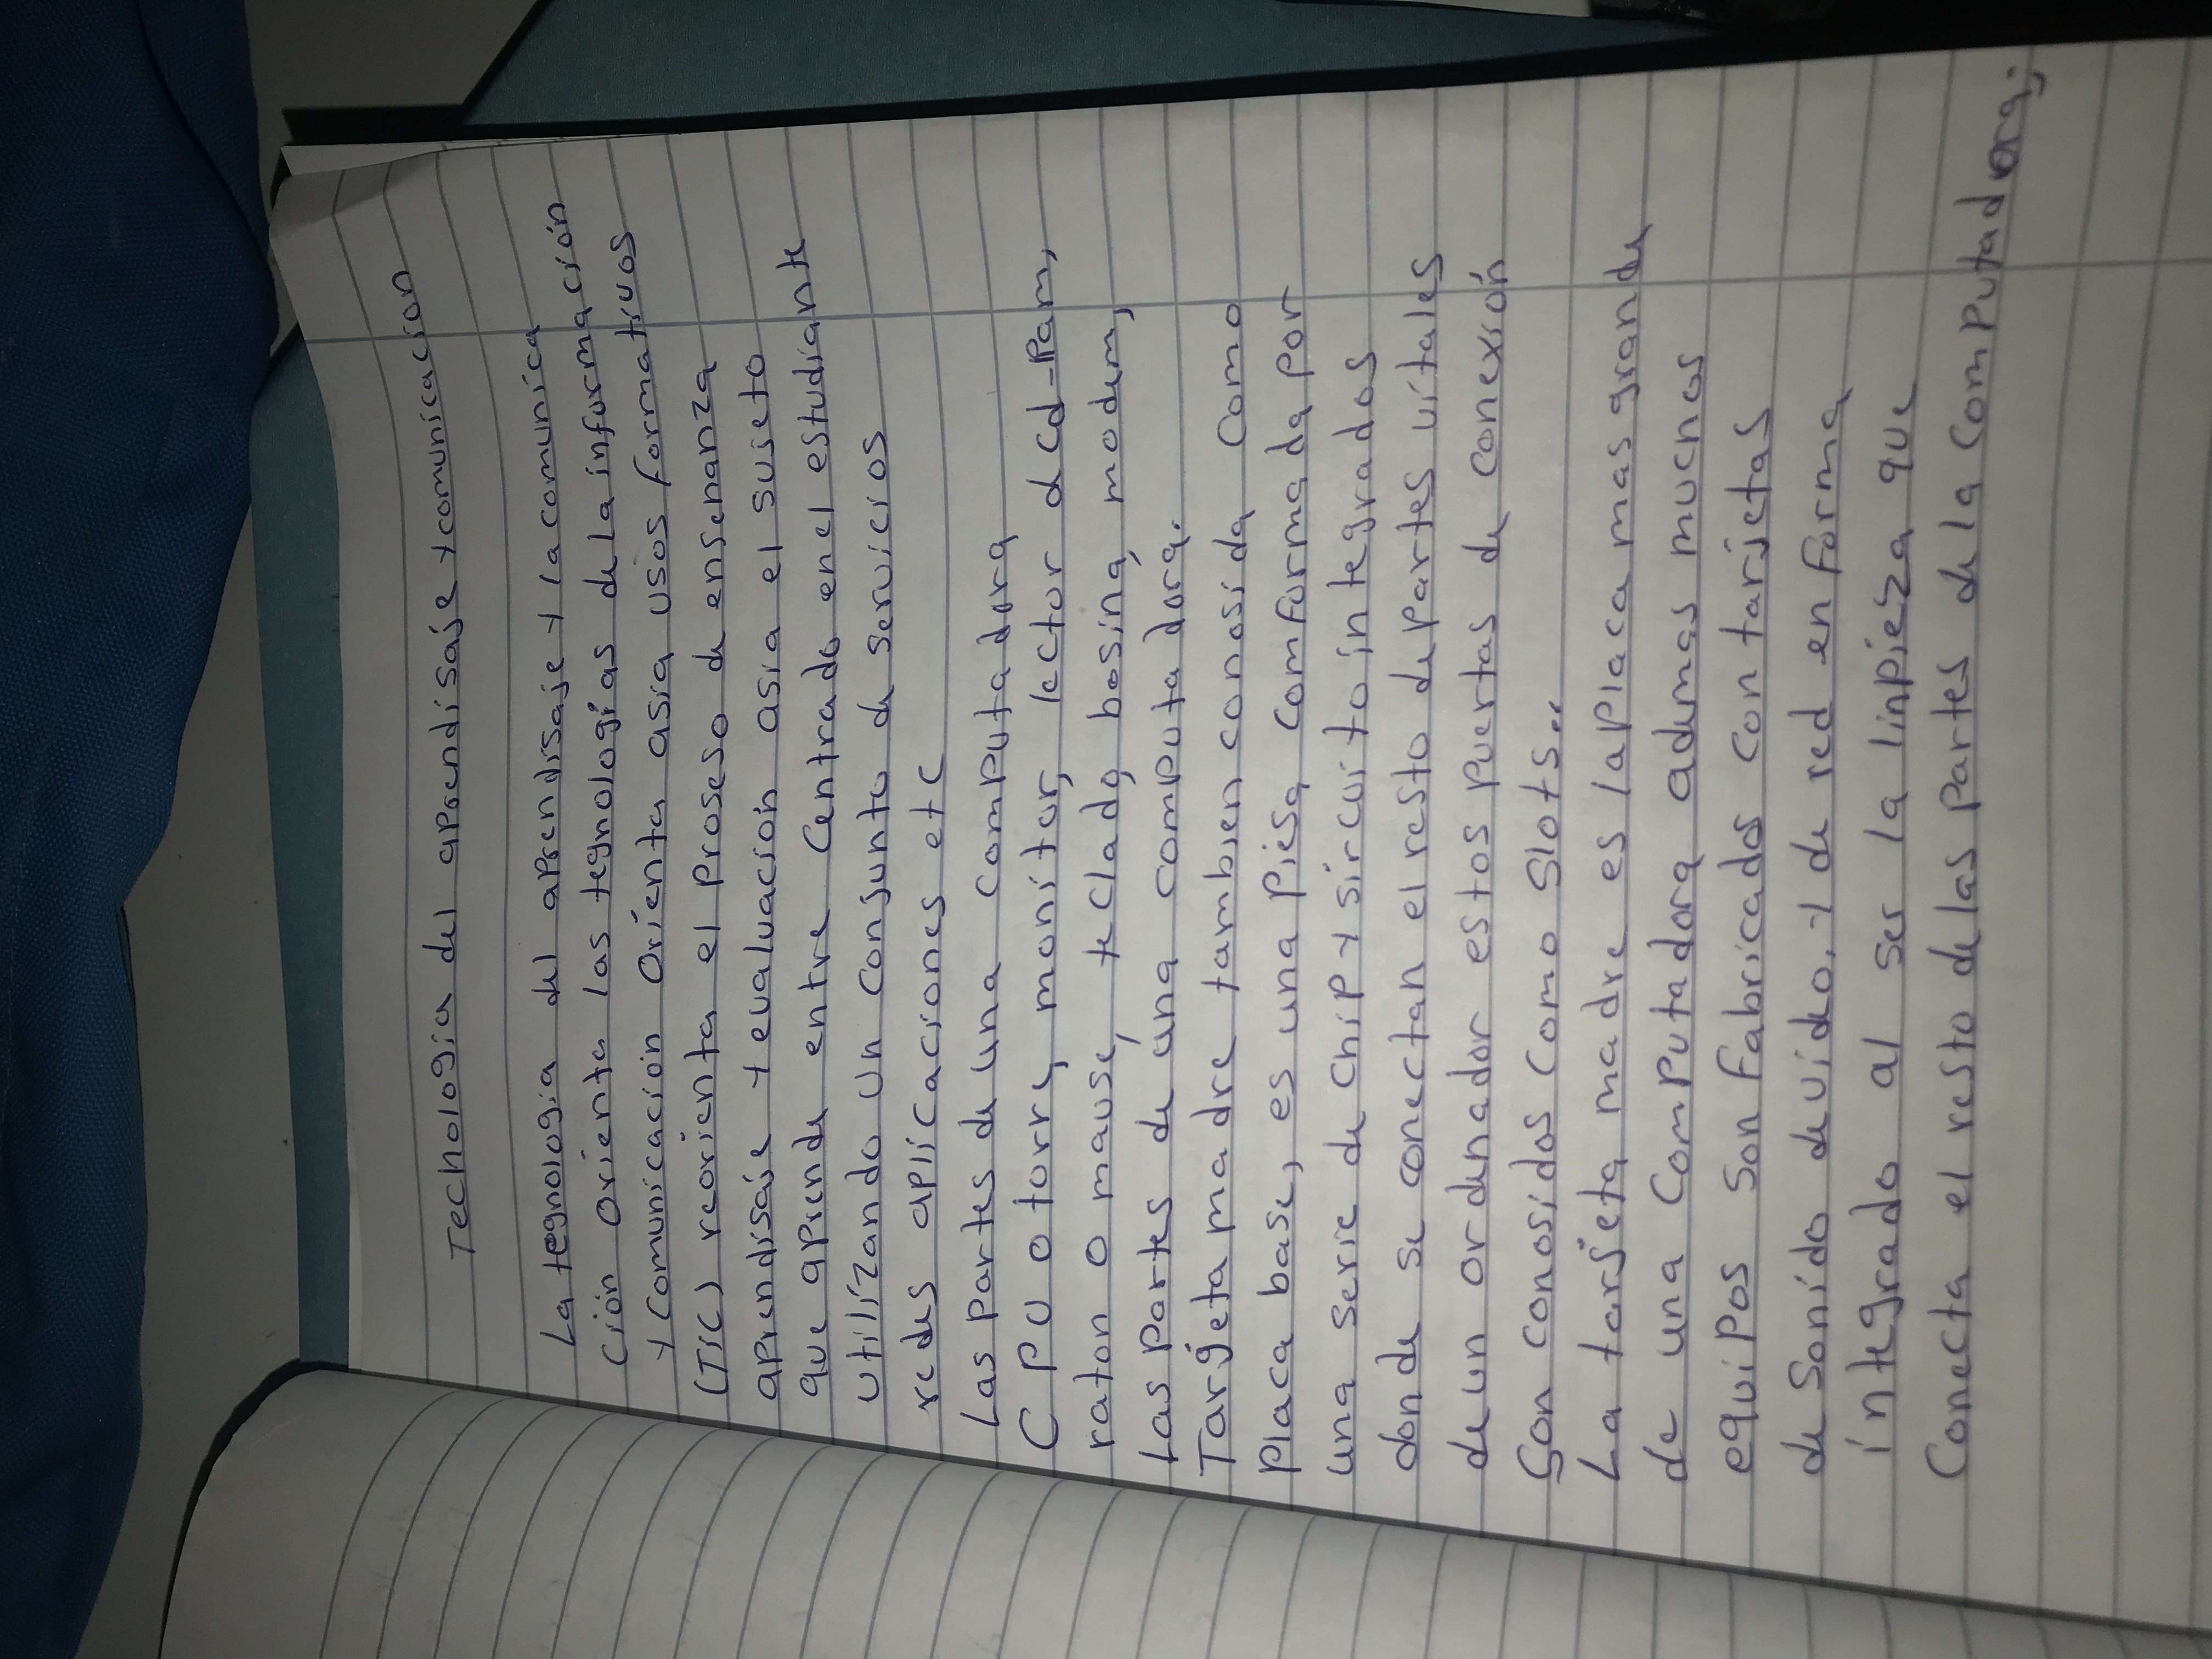 Techologia del aprendisaje y comunicacion
La tegnologia del aprendisaje y la comunica
ción orienta las tegnologias de la información
y comunicación orienta asia usos formativos
(TIC) reorienta el proseso de ensenanza
aprendisaje y evaluacion asia el sujeto
que aprende entre centrado en el estudiante
utilizando un conjunto de servicios
redes aplicaciones etc
Las partes de una computadora
CPU o torre, monitor, lector d cd-Pam,
raton o mause, teclado, bosina, modem,
Las partes de una computadora.
Tarjeta madre tambien conosida como
placa base, es una piesa comformada por
una serie de chip y sircuito integrados
donde se conectan el resto de partes vitales
de un ordenador estos puertas de conexión
son conosidos como slots..
La tarjeta madre es la placa mas grande
de una computadora ademas muchos
equipos son fabricados con tarjetas
de sonido de vido, y de red en forma
integrado al ser la linpieza que
conecta el resto de las partes de la computadora;